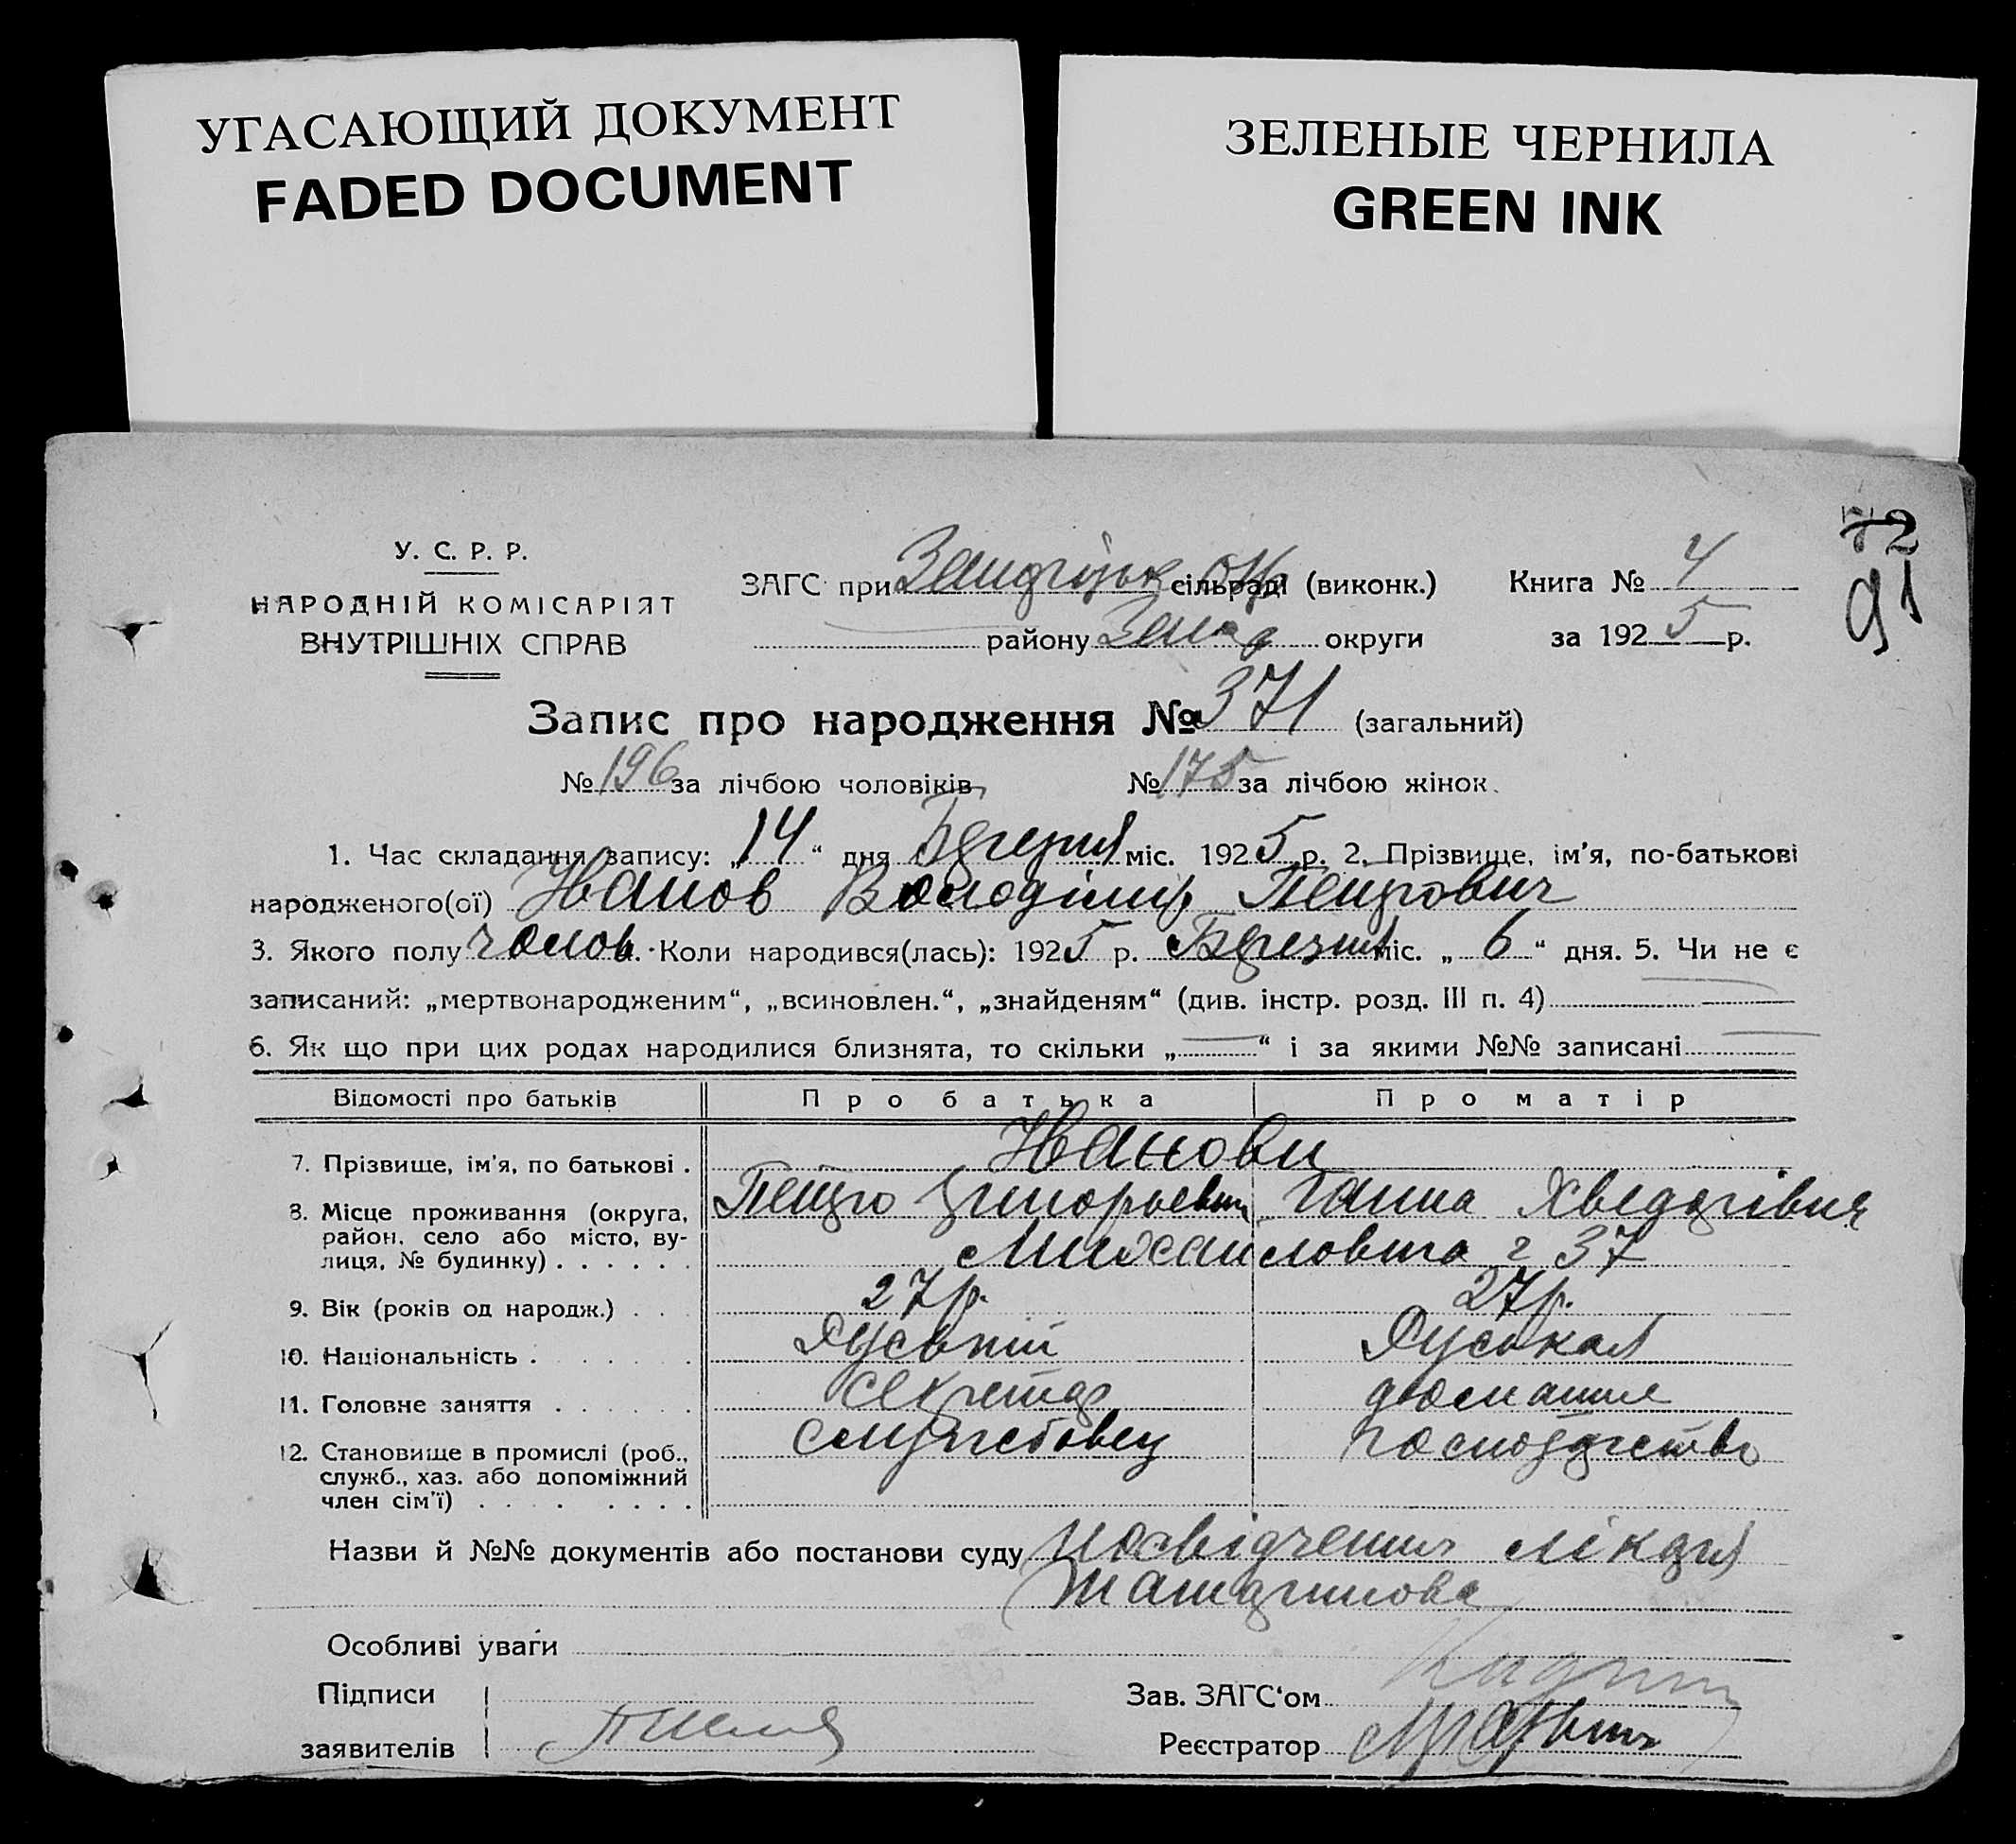 УГАСАЮЩИЙ ДОКУМЕНТ
FADED DOCUMENT
ЗЕЛЕНЫЕ ЧЕРНИЛА
GREEN INK
72
91
У. С. Р. Р.
НАРОДНІЙ КОМІСАРІЯТ
ВНУТРІШНІХ СПРАВ
ЗАГС при сільраді (виконк.)
району округи
Книга № 4
за 1925 р.
Запис про народження № 371 (загальний)
№ 196 за лічбою чоловіків № 175 за лічбою жінок.
1. Час складання запису: „14“ дня Березня міс. 1925 р. 2. Прізвище, ім’я, по-батькові
народженого(ої) Иванов Володімир Петрович
3. Якого полу чолов. Коли народився(лась): 1925 р. Березня міс. „6“ дня. 5. Чи не є
записаний: „мертвонародженим“, „всиновлен.“, „знайденям“ (див. інстр. розд. III п. 4)
6. Як що при цих родах народилися близнята, то скільки „ “ і за якими №№ записані
Відомості про батьків Про батька Про матір
7. Прізвище, ім’я, по батькові . Иванови
8. Місце проживання (округа, район, село або місто, вулиця, № будинку) . . . . . .
Петро Григорьевич Ганна Хведорівна
Михайловска 37
9. Вік (років од народж.) . . 27 р. 27 р.
10. Національність . . . . . . Руський Руськая
11. Головне заняття . . . . . . Секретар домашне
12. Становище в промислі (роб., служб., хаз. або допоміжний член сім’ї) . . . . . . . . службовец господарство
Назви й №№ документів або постанови суду посвідчення лікаря
Особливі уваги
Підписи
заявителів
Зав. ЗАГС‘ом
Реєстратор